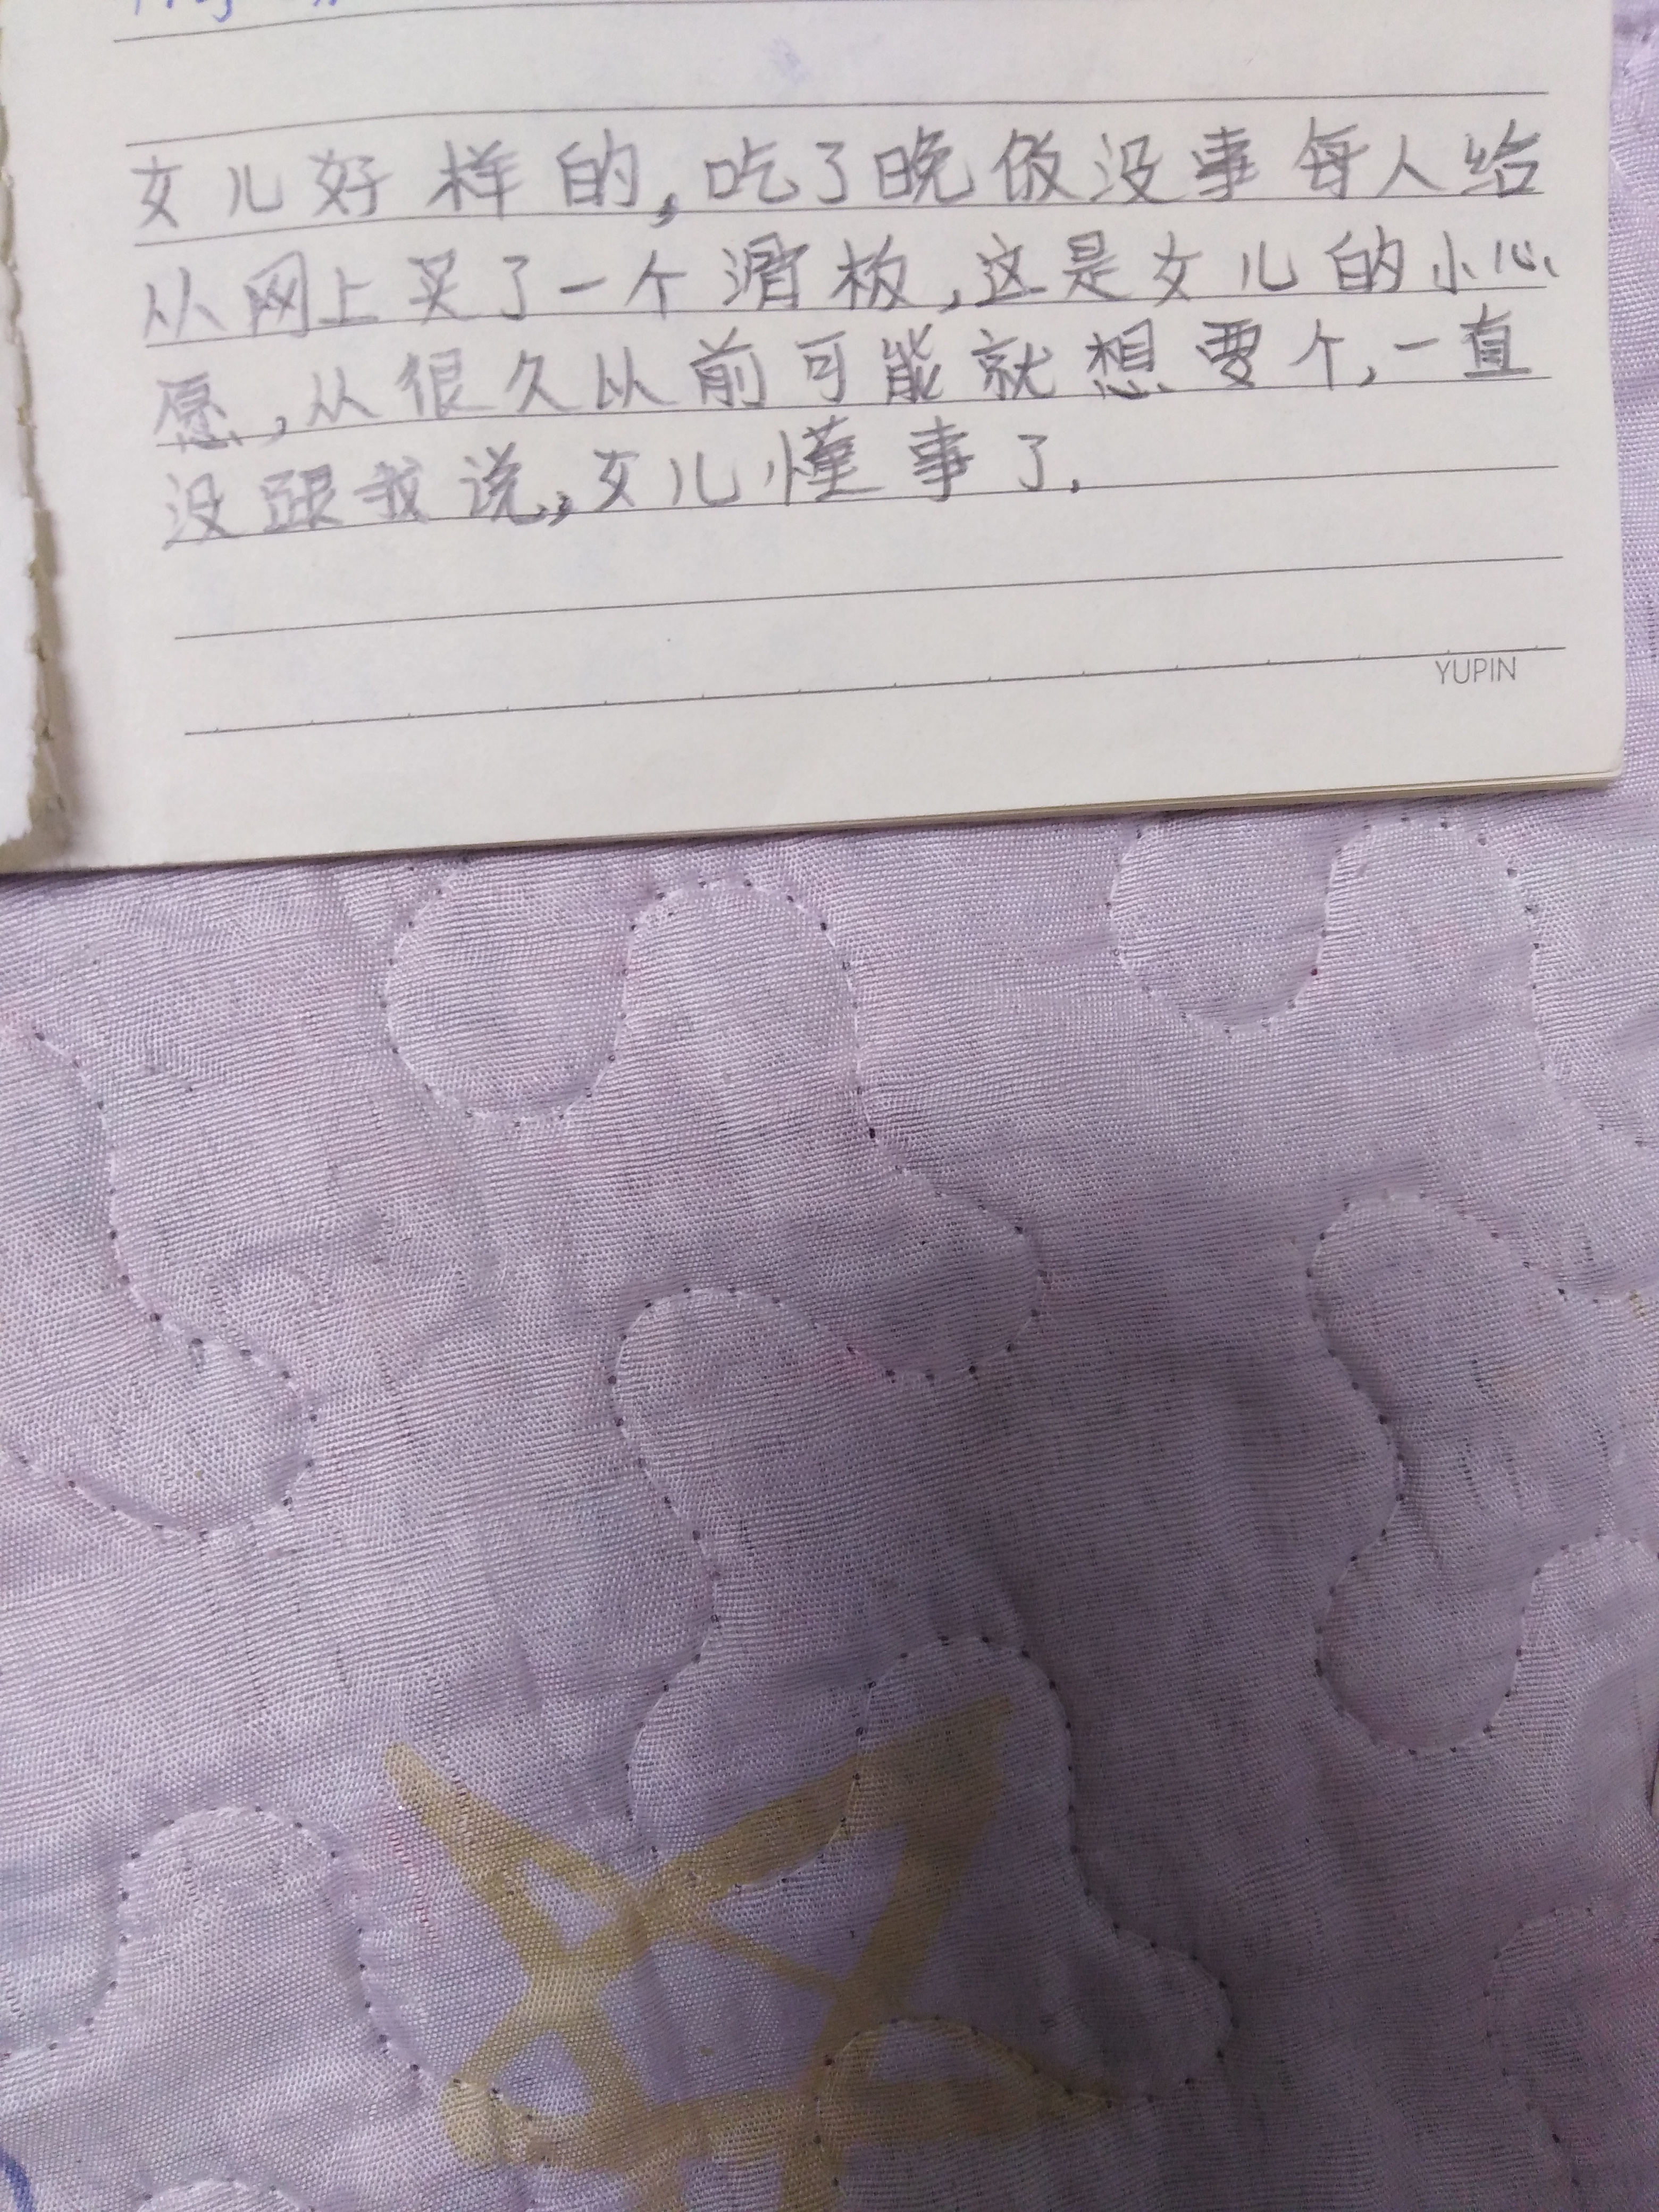 女儿好样的,吃了晚饭没事每人给
从网上买了一个滑板,这是女儿的小心
愿,从很久以前可能就想要个,一直
没跟我说,女儿懂事了.
YUPIN